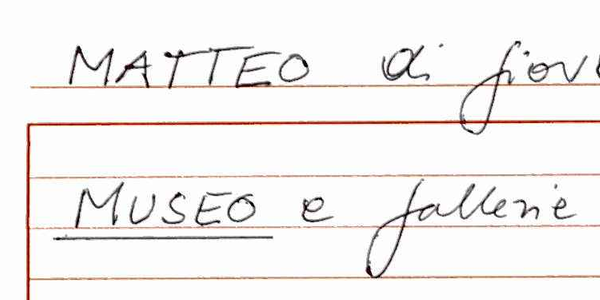 MATTEO di giov
MUSEO e gallerie